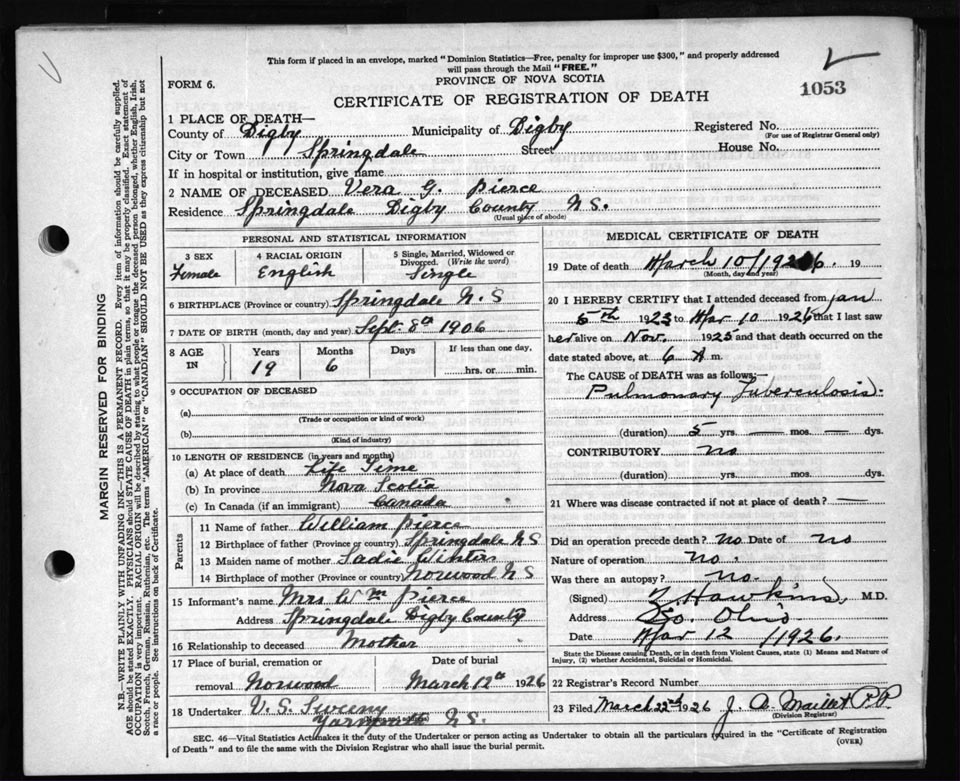 This form if placed in an envelope, marked "Dominion Statistics—Free, penalty for improper use $300," and properly addressed
will pass through the Mail "FREE."
PROVINCE OF NOVA SCOTIA
FORM 6.
CERTIFICATE OF REGISTRATION OF DEATH
1053
1 PLACE OF DEATH—
County of Digby Municipality of Digby Registered No.
(For use of Registrar General only)
City or Town Springdale Street House No.
If in hospital or institution, give name
2 NAME OF DECEASED Vera G. Pierce
Residence Springdale Digby County N.S.
(Usual place of abode)
PERSONAL AND STATISTICAL INFORMATION
3 SEX Female
4 RACIAL ORIGIN English
5 Single, Married, Widowed or Divorced. (Write the word) Single
6 BIRTHPLACE (Province or country) Springdale N.S
7 DATE OF BIRTH (month, day and year) Sept. 8th 1906
8 AGE IN
Years 19
Months 6
Days
If less than one day.
hrs. or min.
9 OCCUPATION OF DECEASED
(a)
(Trade or occupation or kind of work)
(b)
(Kind of industry)
10 LENGTH OF RESIDENCE (in years and months)
(a) At place of death Life Time
(b) In province Nova Scotia
(c) In Canada (if an immigrant) Canada
Parents
11 Name of father William Pierce
12 Birthplace of father (Province or country) Springdale NS
13 Maiden name of mother Sadie
14 Birthplace of mother (Province or country) Norwood NS
15 Informant's name Mrs Wm Pierce
Address Springdale Digby County
16 Relationship to deceased Mother
17 Place of burial, cremation or
removal Norwood
Date of burial
March 12th 1926
18 Undertaker V. S. Sweeny
Yarmouth N.S.
MEDICAL CERTIFICATE OF DEATH
19 Date of death March 10/1926. 19
(Month, day and year)
20 I HEREBY CERTIFY that I attended deceased from Jan
5th 1923 to Mar 10 1926 that I last saw
her alive on Nov. 1925 and that death occurred on the
date stated above, at 6 A m.
The CAUSE of DEATH was as follows:—
Pulmonary Tuberculosis.
(duration) 5 yrs. — mos. — dys.
CONTRIBUTORY no
(duration) yrs. mos. dys.
21 Where was disease contracted if not at place of death? —
Did an operation precede death? no Date of no
Nature of operation no.
Was there an autopsy? no.
(Signed) Hawkins, M.D.
Address So. Ohio
Date Mar 12 /1926.
State the Disease causing Death, or in death from Violent Causes, state (1) Means and Nature of
Injury, (2) whether Accidental, Suicidal or Homicidal.
22 Registrar's Record Number
23 Filed March 22nd 1926 J. A.
(Division Registrar)
SEC. 46—Vital Statistics Act makes it the duty of the Undertaker or person acting as Undertaker to obtain all the particulars required in the "Certificate of Registration
of Death" and to file the same with the Division Registrar who shall issue the burial permit.
(OVER)
MARGIN RESERVED FOR BINDING
N.B.—WRITE PLAINLY WITH UNFADING INK—THIS IS A PERMANENT RECORD. Every item of information should be carefully supplied.
AGE should be stated EXACTLY. PHYSICIANS should STATE CAUSE OF DEATH in plain terms, so that it may be properly classified. Exact statement of
OCCUPATION is very important. RACIAL ORIGIN will be described by stating to what people or tongue the deceased person belonged, whether English, Irish,
Scotch, French, German, Russian, Ruthenian, etc. The terms "AMERICAN" or "CANADIAN" SHOULD NOT BE USED as they express citizenship but not
a race or people. See instructions on back of Certificate.